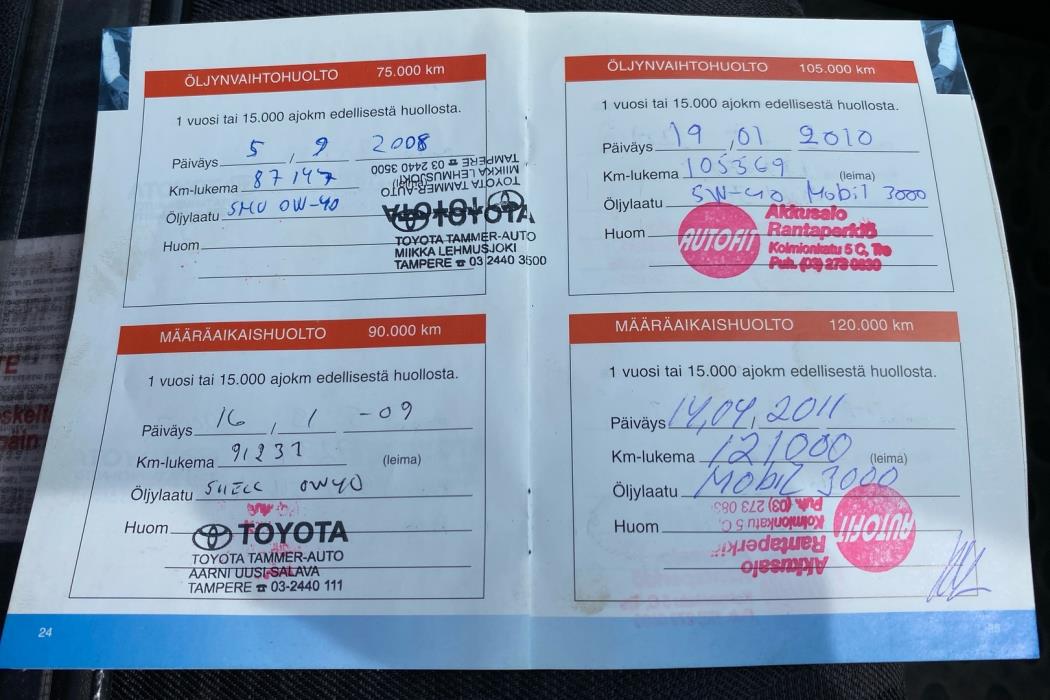 ÖLJYNVAIHTOHUOLTO 75.000 km
1 vuosi tai 15.000 ajokm edellisestä huollosta.
Päiväys 5 / 9 2008
Km-lukema 87147
Öljylaatu 0W-40
Huom
TAMPERE ☎ 03 2440 3500
MIIKKA LEHMUSJOKI
TOYOTA TAMMER-AUTO
TOYOTA
TOYOTA
TOYOTA TAMMER-AUTO
MIIKKA LEHMUSJOKI
TAMPERE ☎ 03 2440 3500
MÄÄRÄAIKAISHUOLTO 90.000 km
1 vuosi tai 15.000 ajokm edellisestä huollosta.
Päiväys 16 / 1 -09
Km-lukema 91231 (leima)
Öljylaatu SHELL 0W40
Huom
TOYOTA
TOYOTA TAMMER-AUTO
AARNI UUSI-SALAVA
TAMPERE ☎ 03-2440 111
24
ÖLJYNVAIHTOHUOLTO 105.000 km
1 vuosi tai 15.000 ajokm edellisestä huollosta.
Päiväys 19 / 01 2010
Km-lukema 105369 (leima)
Öljylaatu 5W-40 Mobil 3000
Huom
AUTOFIT
Akkusalo
Rantaperkiö
Kolmionkatu 5 C, Tre
Puh. (03) 273 0830
MÄÄRÄAIKAISHUOLTO 120.000 km
1 vuosi tai 15.000 ajokm edellisestä huollosta.
Päiväys 14,04, 2011
Km-lukema 121000 (leima)
Öljylaatu Mobil 3000
Huom
AUTOFIT
Akkusalo
Rantaperkiö
Kolmionkatu 5 C
Puh. (03) 273 083